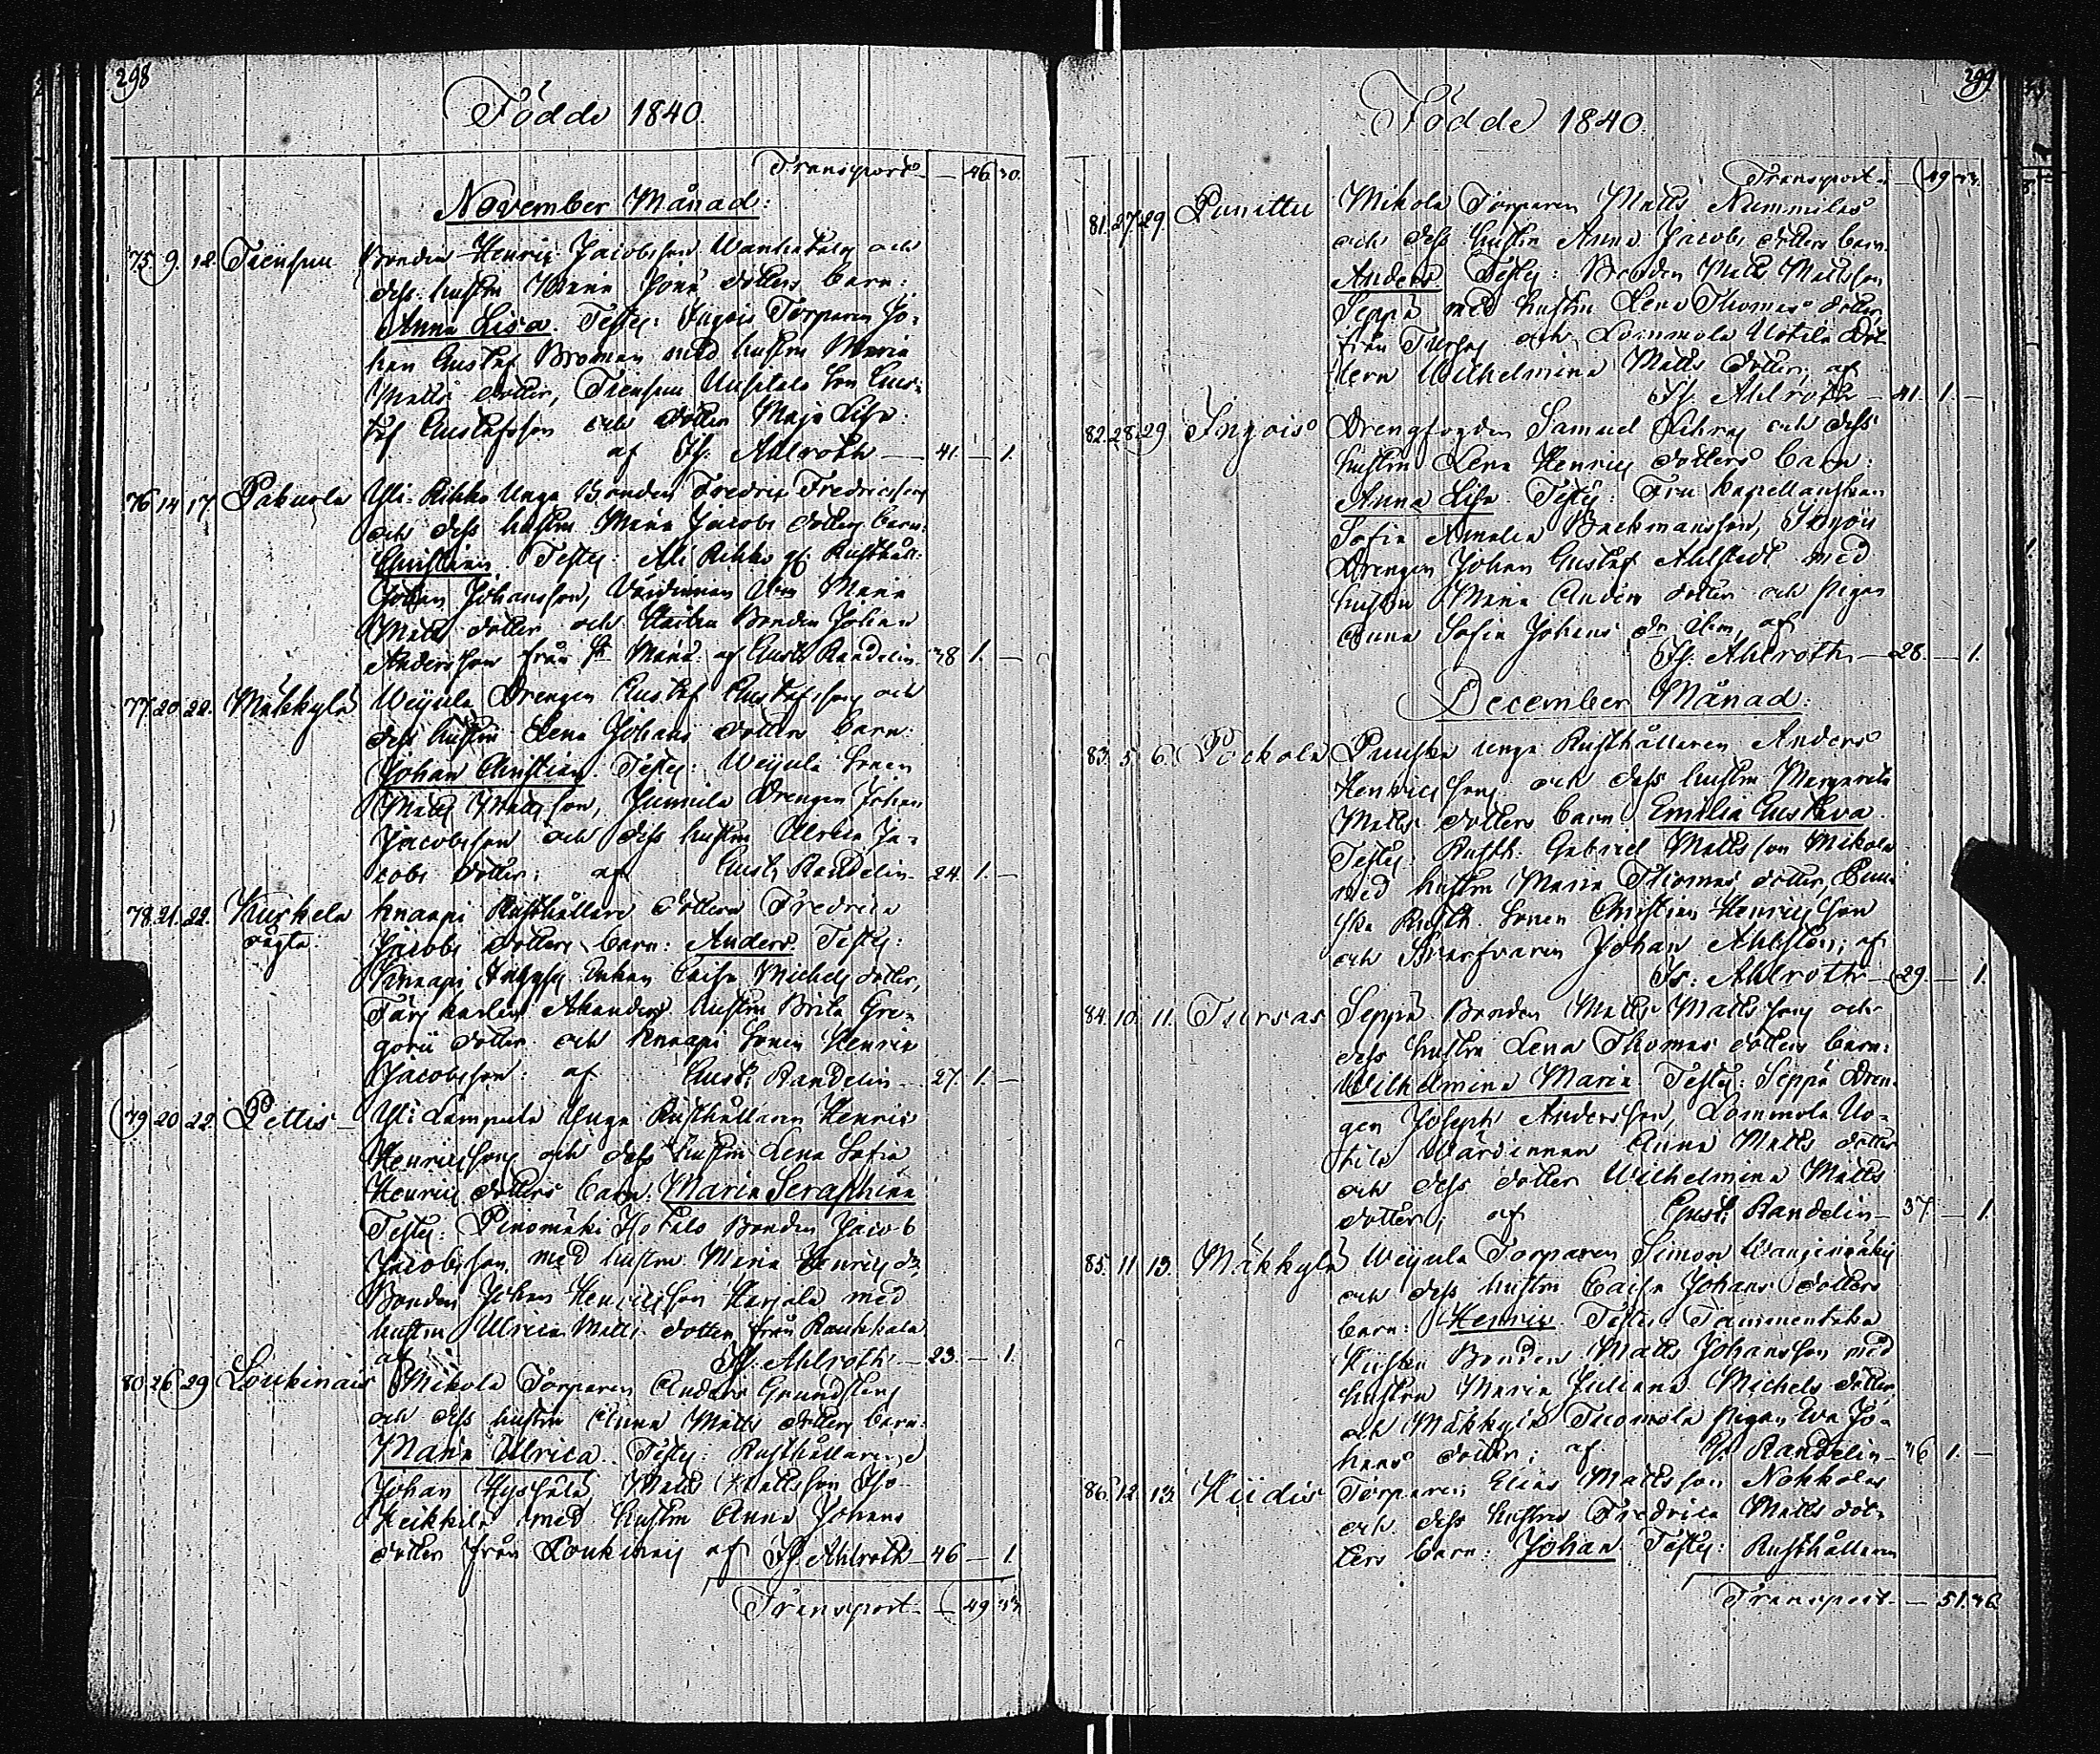 298
Födde 1840.
Transport — 46. 30.
November Månad:
75 9. 12. Tiensuu Bonden Henric Jacobsson Wanhatalo och
dess hustru Maria Jons dotters barn:
Anna Lisa. Test: Ingois Torparen Jo-
han Gustaf Broman med hustru Maria
Matts dotter, Tiensuu Uusitalo Son Gus-
taf Gustafsson och dotter Maja Lisa:
af Fr. Ahlroth — 41. — 1.
76 14 17. Pakuola Yli-Rikko Unga Bonden Fredric Fredricsson
och dess hustru Maria Jacobs dotters barn:
Christian. Test: Ali Rikko Rusthåll.
Johan Johansson, Värdinnan Maria
Matts dotter och Bonden Johan
Andersson från af Gust. Randelin 38 1. —
77. 20 22. Mäkkylä Weijula Drengen Gustaf Gustafsson och
dess hustru Lena Johans dotters barn:
Johan Christian. Test: Weijula Sonen
Matts Mattsson, Junnila Drengen Johan
Jacobsson och dess hustru Ulrica Ja-
cobs dotter; af Gust. Randelin — 24. 1. —
78. 21. 22. Kurkela Knaapi Rusthållare dottern Fredrica
Jacobs dotters barn: Anders. Test:
Knaapi Enkan Caisa Michels dotter,
hustru Brita Gre-
gorii dotter och Knaapi Sonen Henric
Jacobsson: af Gust. Randelin — 27. 1. —
79 20 22. Pettis — Yli Lampula Unga Rusthållaren Henric
Henricsson och dess hustru Lena Sofia
Henrics dotters barn: Maria Seraphina
Test: Pinomäki Isotalo Bonden Jacob
Jacobsson med hustru Maria Henrics dr,
Bonden Johan Henricsson Harjala med
hustru Ulrica Matts dotter från Raukkala
af Fr. Ahlroth — 23. — 1.
80 26 29 Loukinais Mikola Torparen Anders Grundsten
och dess hustru Anna Matts dotters barn:
Maria Ulrica. Test: Rusthållaren
Johan Matts Mattsson Iso-
Heikkilä med hustru Anna Johans
dotter från Loukinais af Fr. Ahlroth — 46 — 1.
Transport — 49 33.
299
Födde 1840.
Transport — 49 33.
81. 27. 29. Punittu Mikola Torparen Matts Nummilas
och dess hustru Anna Jacobs dotters barn:
Anders Test: Bonden Matts Mattsson
Seppä med hustru Lena Thomas dotter
från Tursas och Lommola Uotila Dot-
tern Wilhelmina Matts dotter; af
Fr. Ahlroth — 41. 1. —
82. 28. 29 Ingois Drengfogden Samuel och dess
hustru Lena Henrics dotters barn:
Anna Lisa. Test: Fru Kapellanskan
Sofia Amalia Backmansson, Ingois
Drengen Johan Gustaf Ahlstedt med
hustru Maria Anders dotter och Pigan
Anna Sofia Johans dr, af
Fr. Ahlroth — 28. — 1.
December Månad:
83. 5 6. Pockola Punska unga Rusthållaren Anders
Henricsson och dess hustru Margareta
Matts dotters barn Emilia Gustava.
Test: Rusth. Gabriel Mattsson Mikola
med hustru Maria Thomas dotter, Pun-
ska Rusth. Sonen Christian Henricsson
och Svarfvaren Johan Ahlsten; af
Fr. Ahlroth — 29. — 1.
84. 10. 11. Tursas Seppä Bonden Matts Mattsson och
dess hustru Lena Thomas dotters barn:
Wilhelmina Maria Test: Seppä Dren-
gen Joseph Andersson, Lommola Uo-
tila Värdinnan Anna Matts dotter
och dess dotter Wilhelmina Matts
dotter; af Gust. Randelin — 37. — 1.
85. 11 13. Mäkkylä Weijula Torparen Simon Wanginmäki
och dess hustru Caisa Johans dotters
barn: Henric. Test: Tammentaka
Bonden Matts Johansson med
hustru Maria Juliana Michels dotter,
och Mäkkylä Tuomola Pigan Eva Jo-
hans dotter; af G. Randelin — 46 1. —
86. 12 13. Kiidis Torparen Elias Mattsson Nokkolas
och dess hustru Fredrica Matts dot-
ters barn: Johan. Test: Rusthållaren
Transport — 51. 36.